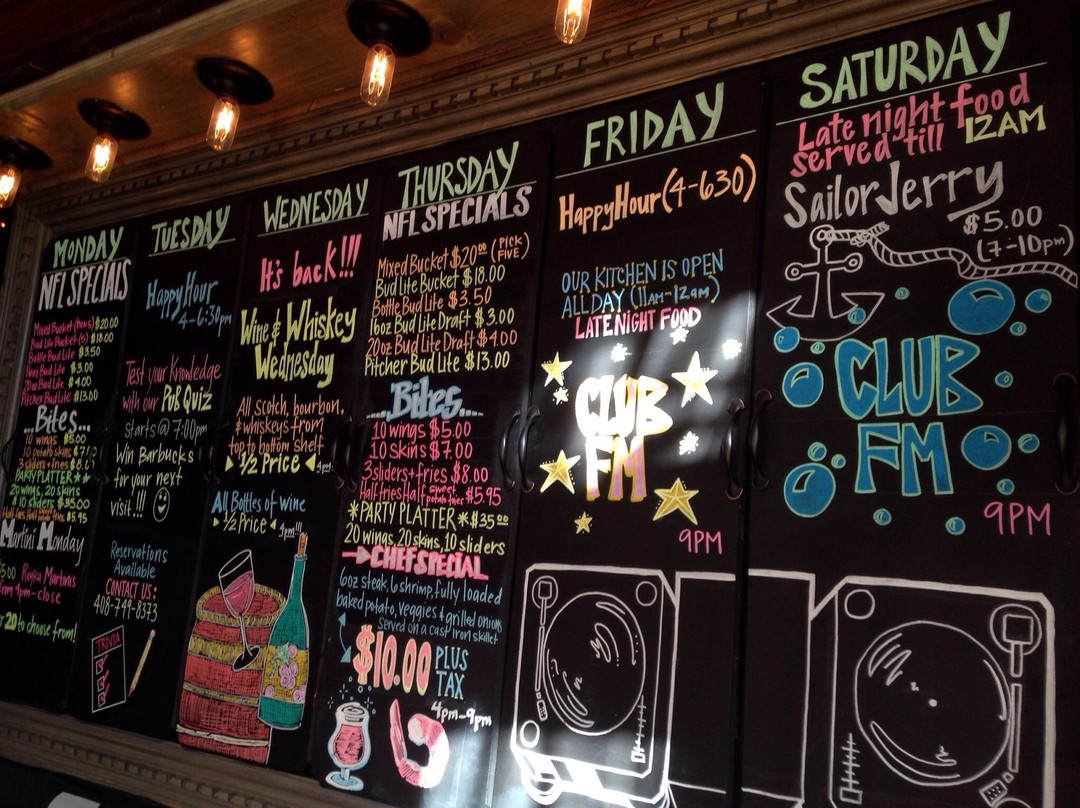 MONDAY
NFL SPECIALS
Mixed Bucket $20.00
Bud Lite Bucket $18.00
Bottle Bud Lite $3.50
16oz Bud Lite $3.00
20oz Bud Lite $4.00
Pitcher Bud Lite $13.00
...Bites...
10 wings $5.00
10 potato skins
3 sliders + fries
PARTY PLATTER
20 wings, 20 skins,
sliders $35.00
$5.95
Martini Monday
Martinis
pm-close
20 to choose from!
TUESDAY
Happy Hour
4-6:30pm
Test your Knowledge
with our PUB QUIZ
Starts @ 7:00pm
Win Barbucks
for your next
visit!!!
Reservations
Available
CONTACT US:
408-749-8373
TRIVIA
WEDNESDAY
It's back!!!
Wine & Whiskey
Wednesday
All scotch, bourbon,
& whiskeys from
top to bottom shelf
1/2 Price
All Bottles of wine
1/2 Price
THURSDAY
NFL SPECIALS
Mixed Bucket $20.00 (PICK FIVE)
Bud Lite Bucket $18.00
Bottle Bud Lite $3.50
16oz Bud Lite Draft $3.00
20oz Bud Lite Draft $4.00
Pitcher Bud Lite $13.00
...Bites...
10 wings $5.00
10 Skins $7.00
3 sliders + fries $8.00
Half fries Half sweet potato fries $5.95
*PARTY PLATTER* $35.00
20 wings, 20 skins, 10 sliders
CHEF SPECIAL
6oz steak, 6 shrimp, fully loaded
baked potato, veggies & grilled onions
Served on a cast iron skillet
$10.00 PLUS TAX
4pm-9pm
FRIDAY
Happy Hour (4-630)
OUR KITCHEN IS OPEN
ALL DAY (11am-12am)
LATE NIGHT FOOD
CLUB
FM
9PM
SATURDAY
Late night food
served till 12AM
Sailor Jerry
$5.00
(7-10pm)
CLUB
FM
9PM